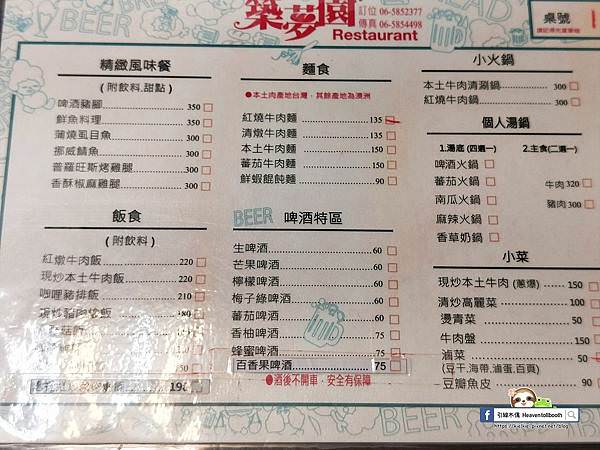 築夢園
Restaurant
訂位 06-5852377
傳真 06-5854498
桌號
精緻風味餐
(附飲料.甜點)
啤酒豬腳 350
鮮魚料理 350
蒲燒虱目魚 300
挪威鯖魚 300
普羅旺斯烤雞腿 300
香酥椒麻雞腿 300
飯食
(附飲料)
紅燉牛肉飯 220
現炒本土牛肉飯 220
咖哩豬排飯 210
180
190
麵食
●本土肉產地台灣,其餘產地為澳洲
紅燒牛肉麵 135
清燉牛肉麵 135
本土牛肉麵 150
蕃茄牛肉麵 150
鮮蝦餛飩麵 90
BEER 啤酒特區
生啤酒 60
芒果啤酒 60
檸檬啤酒 60
梅子綠啤酒 60
蕃茄啤酒 60
香柚啤酒 75
蜂蜜啤酒 75
百香果啤酒 75
●酒後不開車,安全有保障
小火鍋
本土牛肉清涮鍋 300
紅燒牛肉鍋 300
個人湯鍋
1.湯底(四選一) 2.主食(二選一)
啤酒火鍋
蕃茄火鍋 牛肉320
南瓜火鍋 豬肉300
麻辣火鍋
香草奶鍋
小菜
現炒本土牛肉(蔥爆) 150
清炒高麗菜 100
燙青菜 50
牛肉盤 150
滷菜 50
(豆干,海帶,滷蛋,百頁)
豆瓣魚皮 90
引線不信 Heaventollbooth